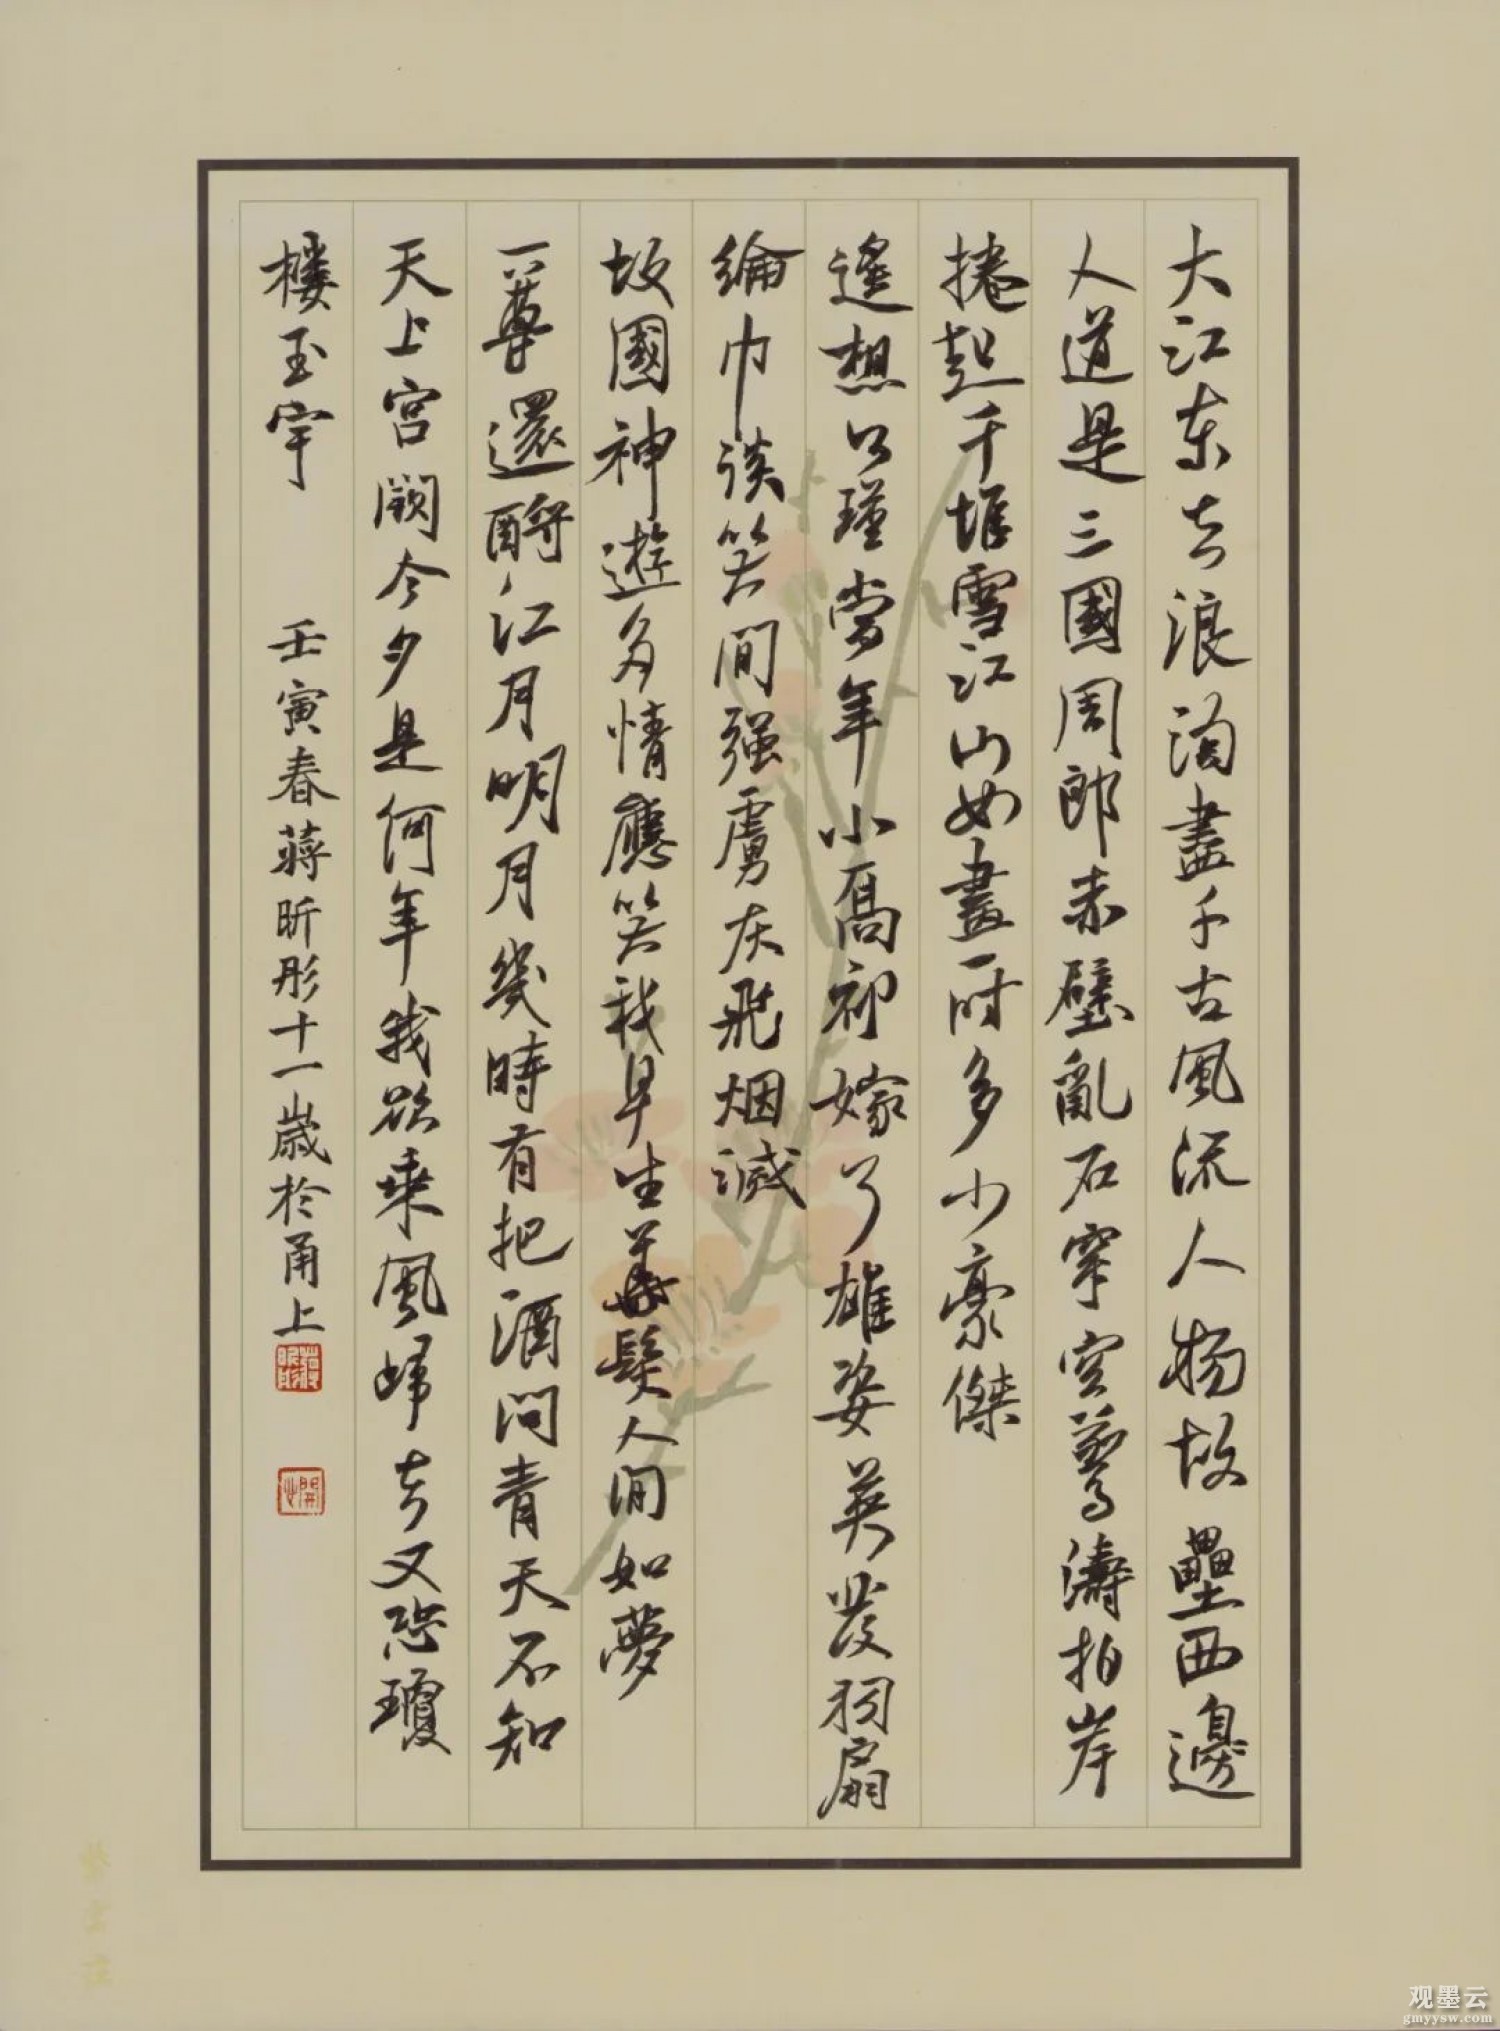 大江東去浪淘盡千古風流人物故壘西邊
人道是三國周郎赤壁亂石穿空驚濤拍岸
捲起千堆雪江山如畫一時多少豪傑
遙想公瑾當年小喬初嫁了雄姿英發羽扇
綸巾談笑間强虜灰飛烟滅
故國神遊多情應笑我早生華髮人間如夢
一尊還酹江月明月幾時有把酒問青天不知
天上宮闕今夕是何年我欲乘風歸去又恐瓊
樓玉宇 壬寅春蔣昕彤十一歲於甬上
观墨云
gmyysw.com